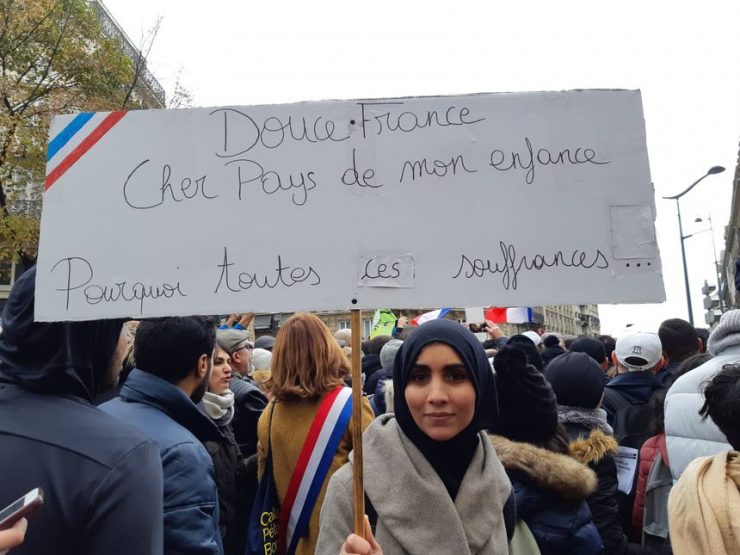 Douce France
Cher Pays de mon enfance
Pourquoi toutes ces souffrances...